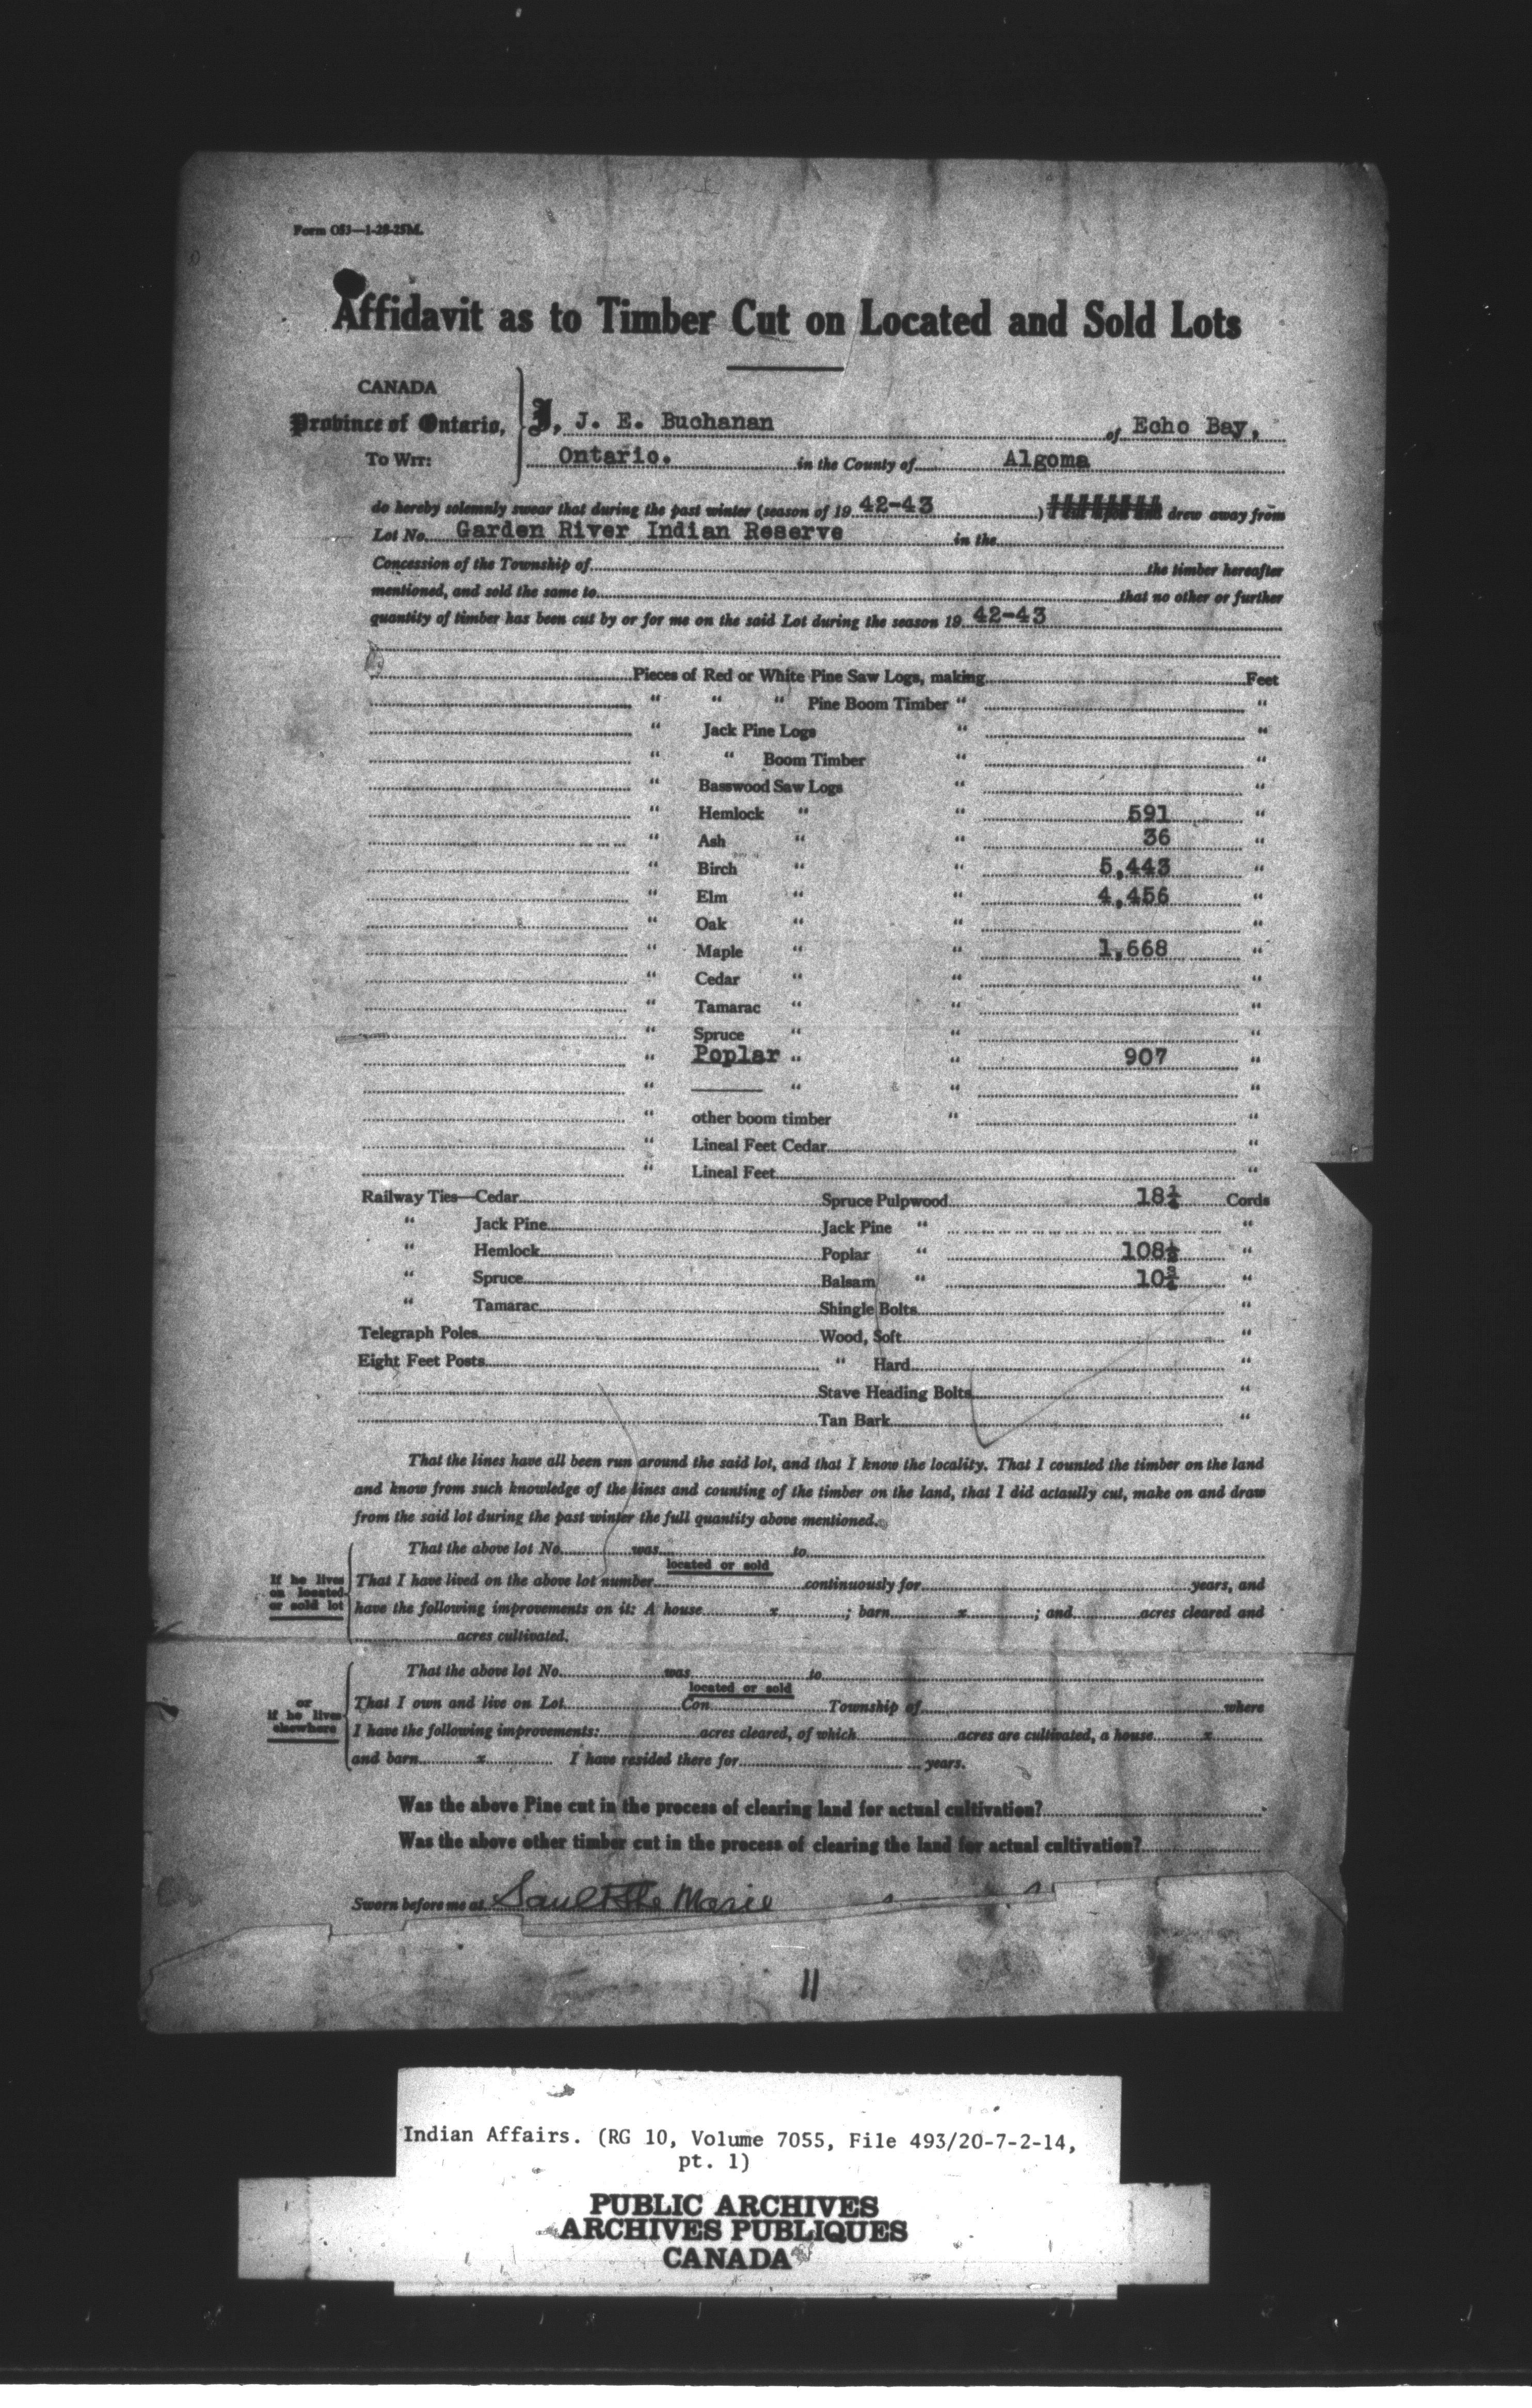 Form O53—1-28-25M.
Affidavit as to Timber Cut on Located and Sold Lots
CANADA
Province of Ontario,
To Wit:
I, J. E. Buchanan of Echo Bay,
Ontario. in the County of Algoma
do hereby solemnly swear that during the past winter (season of 19 42-43 ) drew away from
Lot No. Garden River Indian Reserve in the
Concession of the Township of the timber hereafter
mentioned, and sold the same to that no other or further
quantity of timber has been cut by or for me on the said Lot during the season 19 42-43
Pieces of Red or White Pine Saw Logs, making Feet
" " " Pine Boom Timber " "
" Jack Pine Logs " "
" " Boom Timber " "
" Basswood Saw Logs " "
" Hemlock " " 591 "
" Ash " " 36 "
" Birch " " 5,443 "
" Elm " " 4,456 "
" Oak " " "
" Maple " " 1,668 "
" Cedar " " "
" Tamarac " " "
" Spruce " " "
" Poplar " " 907 "
" " " "
" other boom timber " "
" Lineal Feet Cedar "
" Lineal Feet "
Railway Ties—Cedar Spruce Pulpwood 18¼ Cords
" Jack Pine Jack Pine " "
" Hemlock Poplar " 108½ "
" Spruce Balsam " 10¾ "
" Tamarac Shingle Bolts "
Telegraph Poles Wood, Soft "
Eight Feet Posts " Hard "
Stave Heading Bolts "
Tan Bark "
That the lines have all been run around the said lot, and that I know the locality. That I counted the timber on the land
and know from such knowledge of the lines and counting of the timber on the land, that I did actaully cut, make on and draw
from the said lot during the past winter the full quantity above mentioned.
That the above lot No. was to
located or sold
If he lives on located or sold lot
That I have lived on the above lot number continuously for years, and
have the following improvements on it: A house x ; barn x ; and acres cleared and
acres cultivated.
That the above lot No. was to
located or sold
or if he lives elsewhere
That I own and live on Lot Con. Township of where
I have the following improvements: acres cleared, of which acres are cultivated, a house x
and barn x I have resided there for years.
Was the above Pine cut in the process of clearing land for actual cultivation?
Was the above other timber cut in the process of clearing the land for actual cultivation?
Sworn before me at Sault Ste Marie
11
Indian Affairs. (RG 10, Volume 7055, File 493/20-7-2-14,
pt. 1)
PUBLIC ARCHIVES
ARCHIVES PUBLIQUES
CANADA